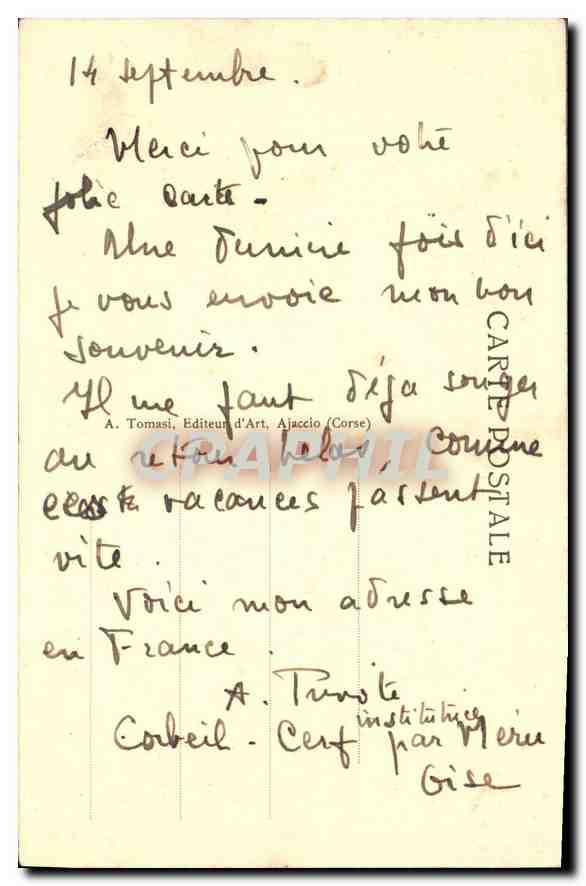 14 septembre.
Merci pour votre
jolie carte -
Une dernière fois d'ici
je vous envoie mon bon
souvenir.
Il me faut déja songer
A. Tomasi, Editeur d'Art, Ajaccio (Corse)
au retour helas, comme
vacances passent
vite.
Voici mon adresse
en France.
A.
institutrice
Corbeil - Cerf par Méru
Oise
CARTE POSTALE
CPAPHIL